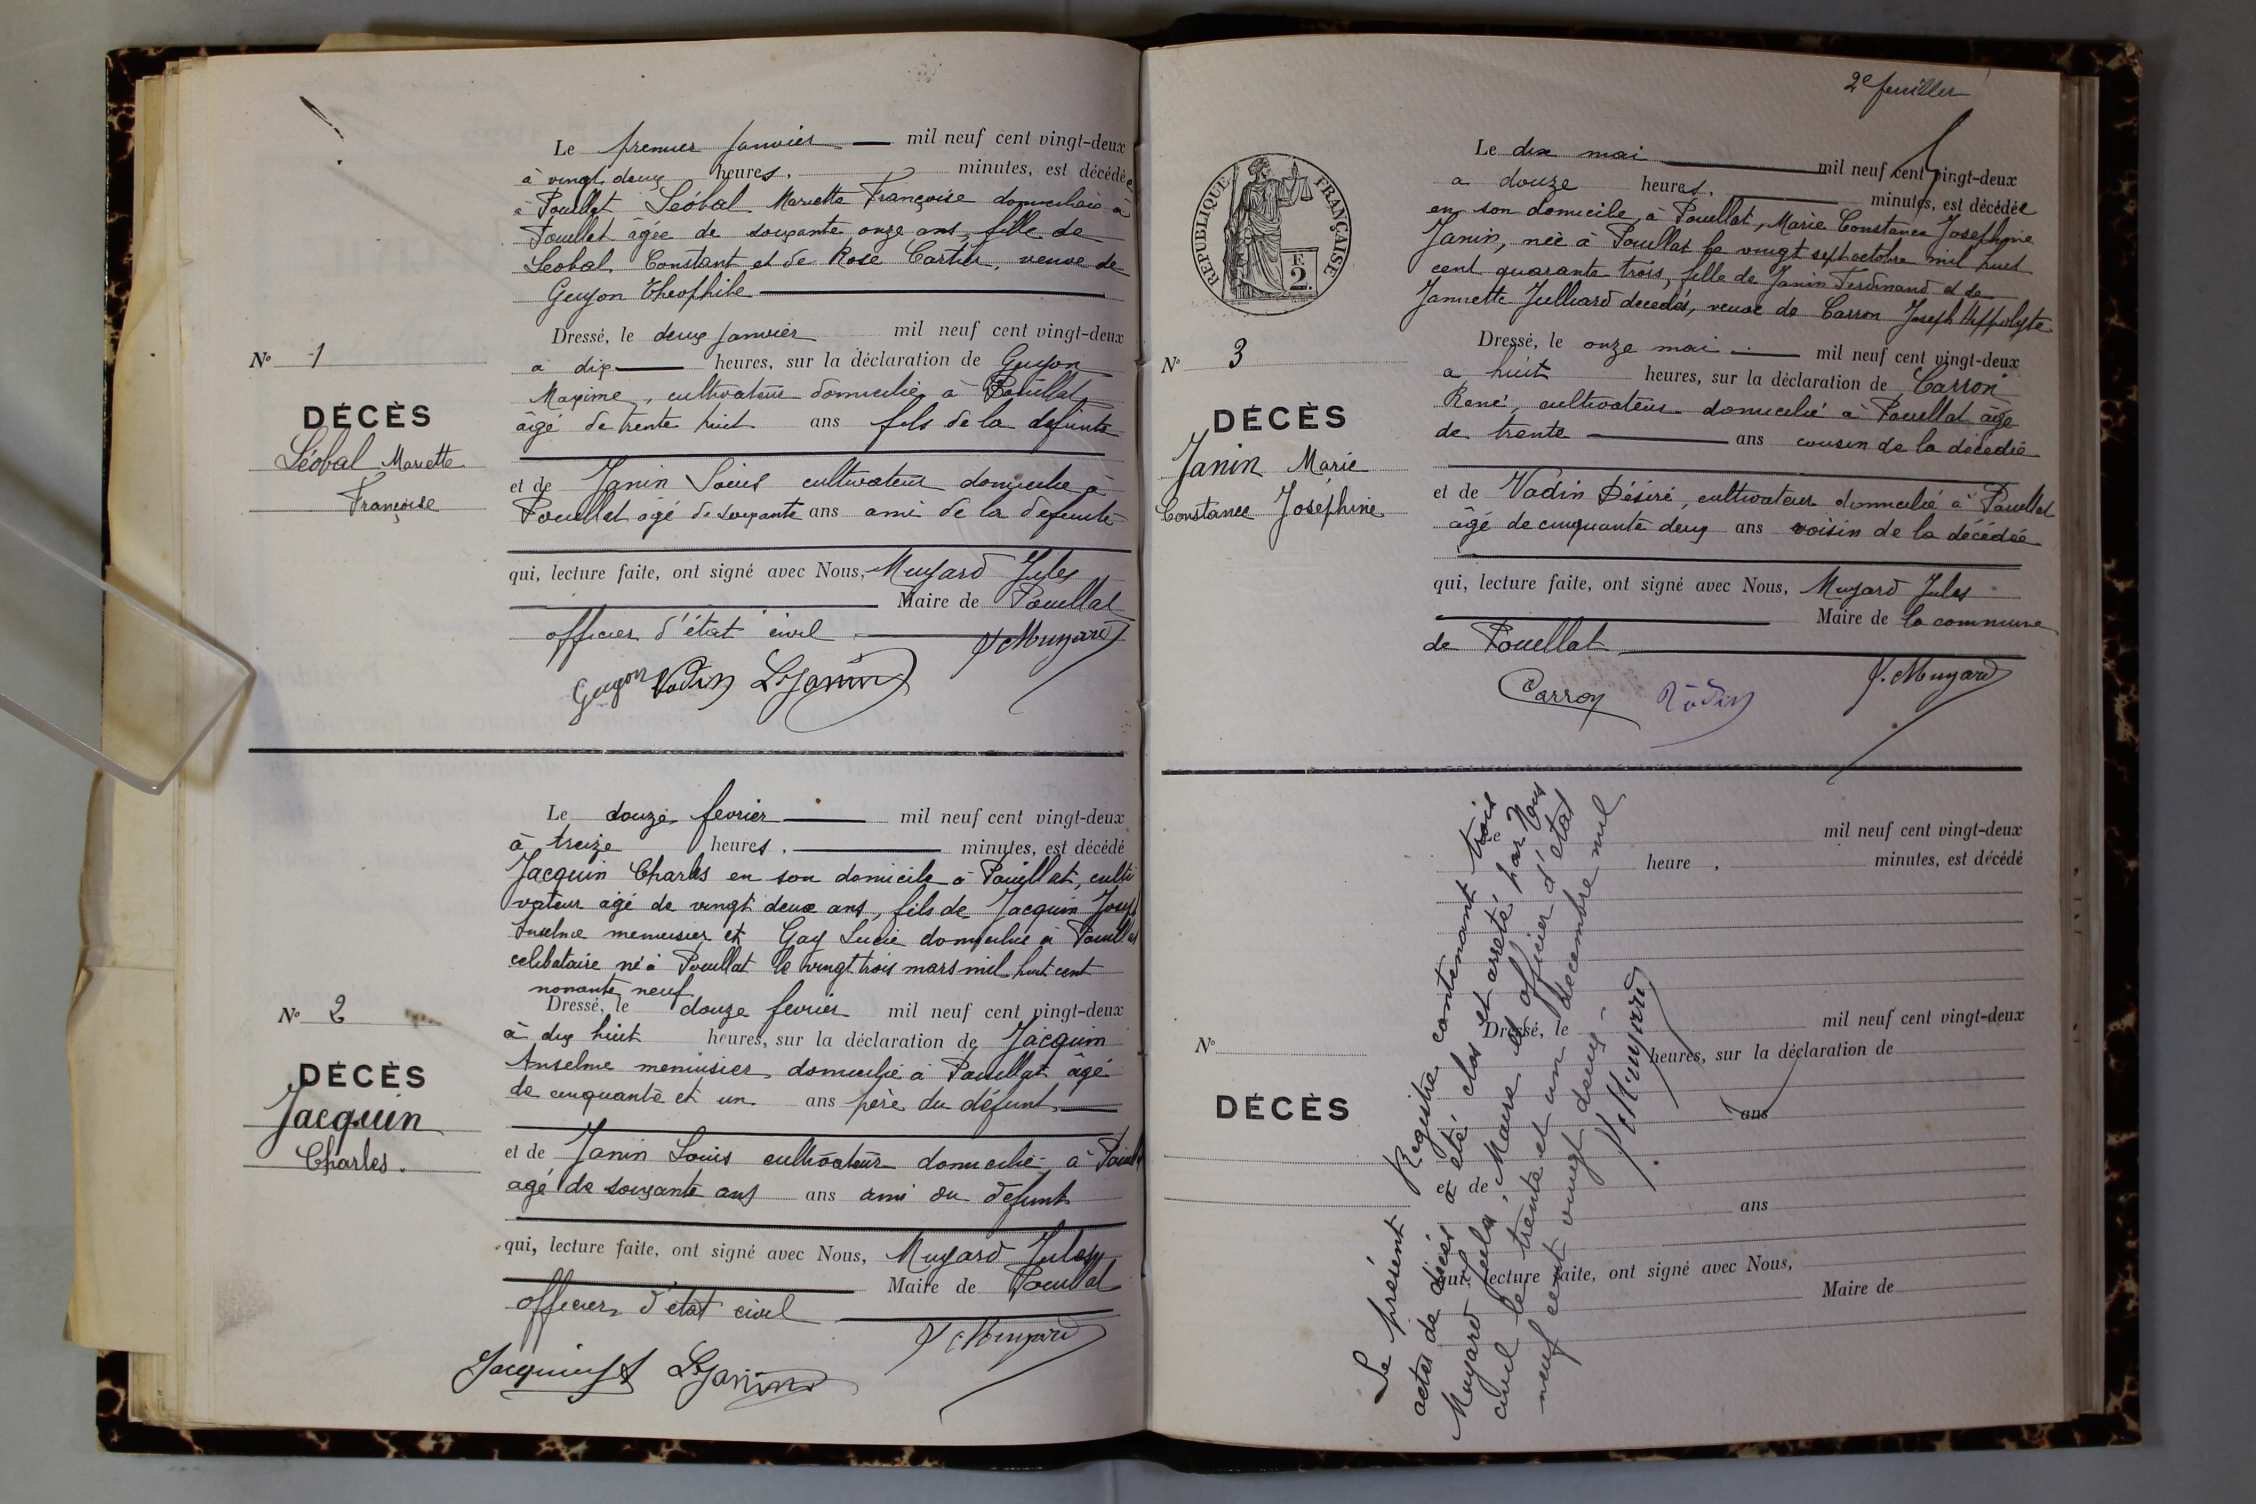 Le premier Janvier mil neuf cent vingt-deux
à vingt deux heures, minutes, est décédée
à Pouillat Léobal Mariette Françoise domiciliée à
Pouillat âgée de soixante onze ans, fille de
Léobal Constant et de Rose Cartier, veuve de
Guyon Théophile
Dressé, le deux Janvier mil neuf cent vingt-deux
à dix heures, sur la déclaration de Guyon
Maxime, cultivateur domicilié à Pouillat
âgé de trente huit ans fils de la défunte
et de Janin Louis cultivateur domicilié à
Pouillat âgé de soixante ans ami de la défunte
qui, lecture faite, ont signé avec Nous, Muyard Jules
Maire de Pouillat
officier d'état civil
J. Muyard
Guyon Vadin L. Janin
N° 1
DÉCÈS
Léobal Mariette
Françoise
Le douze fevrier mil neuf cent vingt-deux
à treize heures, minutes, est décédé
Jacquin Charles en son domicile à Pouillat, culti
vateur âgé de vingt deux ans, fils de Jacquin Joseph
Anselme menuisier et Gay Lucie domiciliés à Pouillat
celibataire né à Pouillat le vingt trois mars mil huit cent
nonante neuf
Dressé, le douze fevrier mil neuf cent vingt-deux
à dix huit heures, sur la déclaration de Jacquin
Anselme menuisier domicilié à Pouillat âgé
de cinquante et un ans père du défunt
et de Janin Louis cultivateur domicilié à Pouillat
agé de soixante ans ans ami du défunt
qui, lecture faite, ont signé avec Nous, Muyard Jules
Maire de Pouillat
officier d'état civil
J. Muyard
Jacquin L. Janin
N° 2
DÉCÈS
Jacquin
Charles.
2e feuillet
RÉPUBLIQUE FRANÇAISE
2F.
Le dix mai mil neuf cent vingt-deux
a douze heures, minutes, est décédée
en son domicile, à Pouillat, Marie Constance Josephine
Janin, née à Pouillat le vingt sept octobre mil huit
cent quarante trois, fille de Janin Ferdinand et de
Jannette Julliard decedés, veuve de Carron Joseph Hippolyte
Dressé, le onze mai mil neuf cent vingt-deux
a huit heures, sur la déclaration de Carron
René, cultivateur domicilié à Pouillat âgé
de trente ans cousin de la décédée
et de Vadin Désiré, cultivateur domicilié à Pouillat
âgé de cinquante deux ans voisin de la décédée
qui, lecture faite, ont signé avec Nous, Muyard Jules
Maire de la commune
de Pouillat
Carron Vadin J. Muyard
N° 3
DÉCÈS
Janin Marie
Constance Joséphine
Le mil neuf cent vingt-deux
heure , minutes, est décédé
Dressé, le mil neuf cent vingt-deux
heures, sur la déclaration de
ans
et de
ans
qui, lecture faite, ont signé avec Nous,
Maire de
N°
DÉCÈS
Le présent Registre contenant trois
actes de décès a été clos et arrêté par Nous
Muyard Jules, Maire et officier d'état
civil le trente et un décembre mil
neuf cent vingt deux
J. Muyard